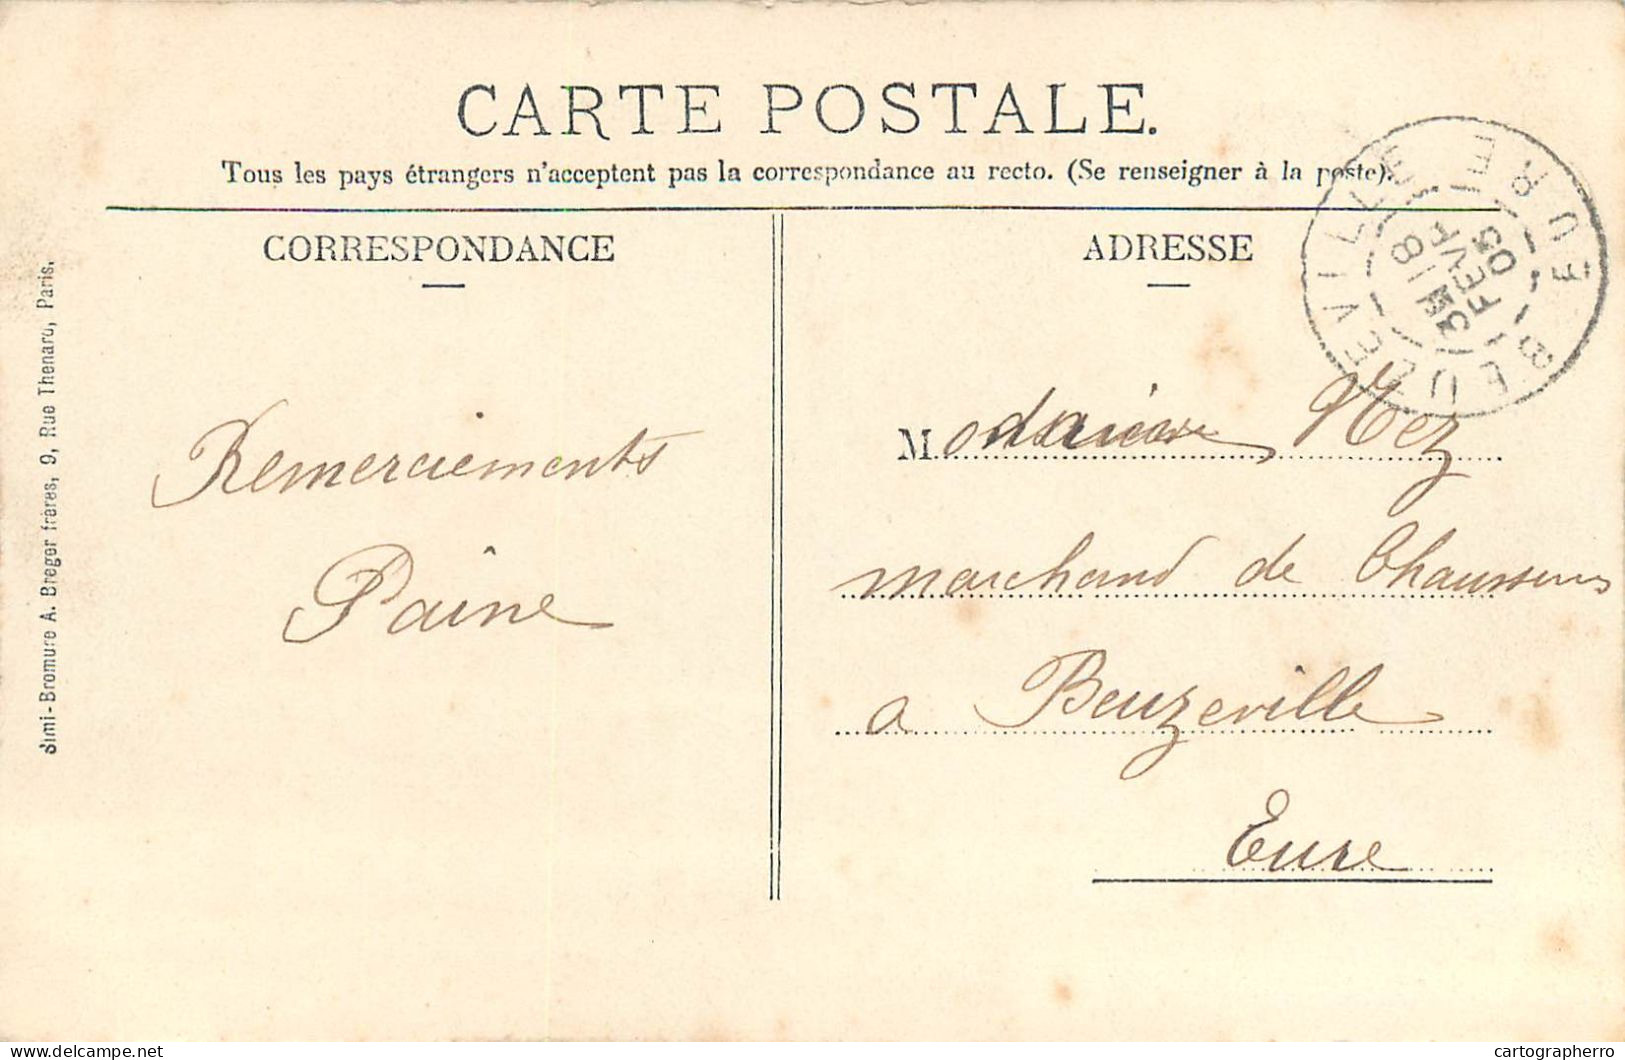 CARTE POSTALE.
Tous les pays étrangers n'acceptent pas la correspondance au recto. (Se renseigner à la poste).
CORRESPONDANCE
ADRESSE
BEUZEVILLE
EURE
3E 18
FEVR
05
Remerciements
Paîne
M Nez
marchand de Chaussures
a Beuzeville
Eure
Simi-Bromure A. Breger frères, 9, Rue Thenard, Paris.
delcampe.net
cartographerro